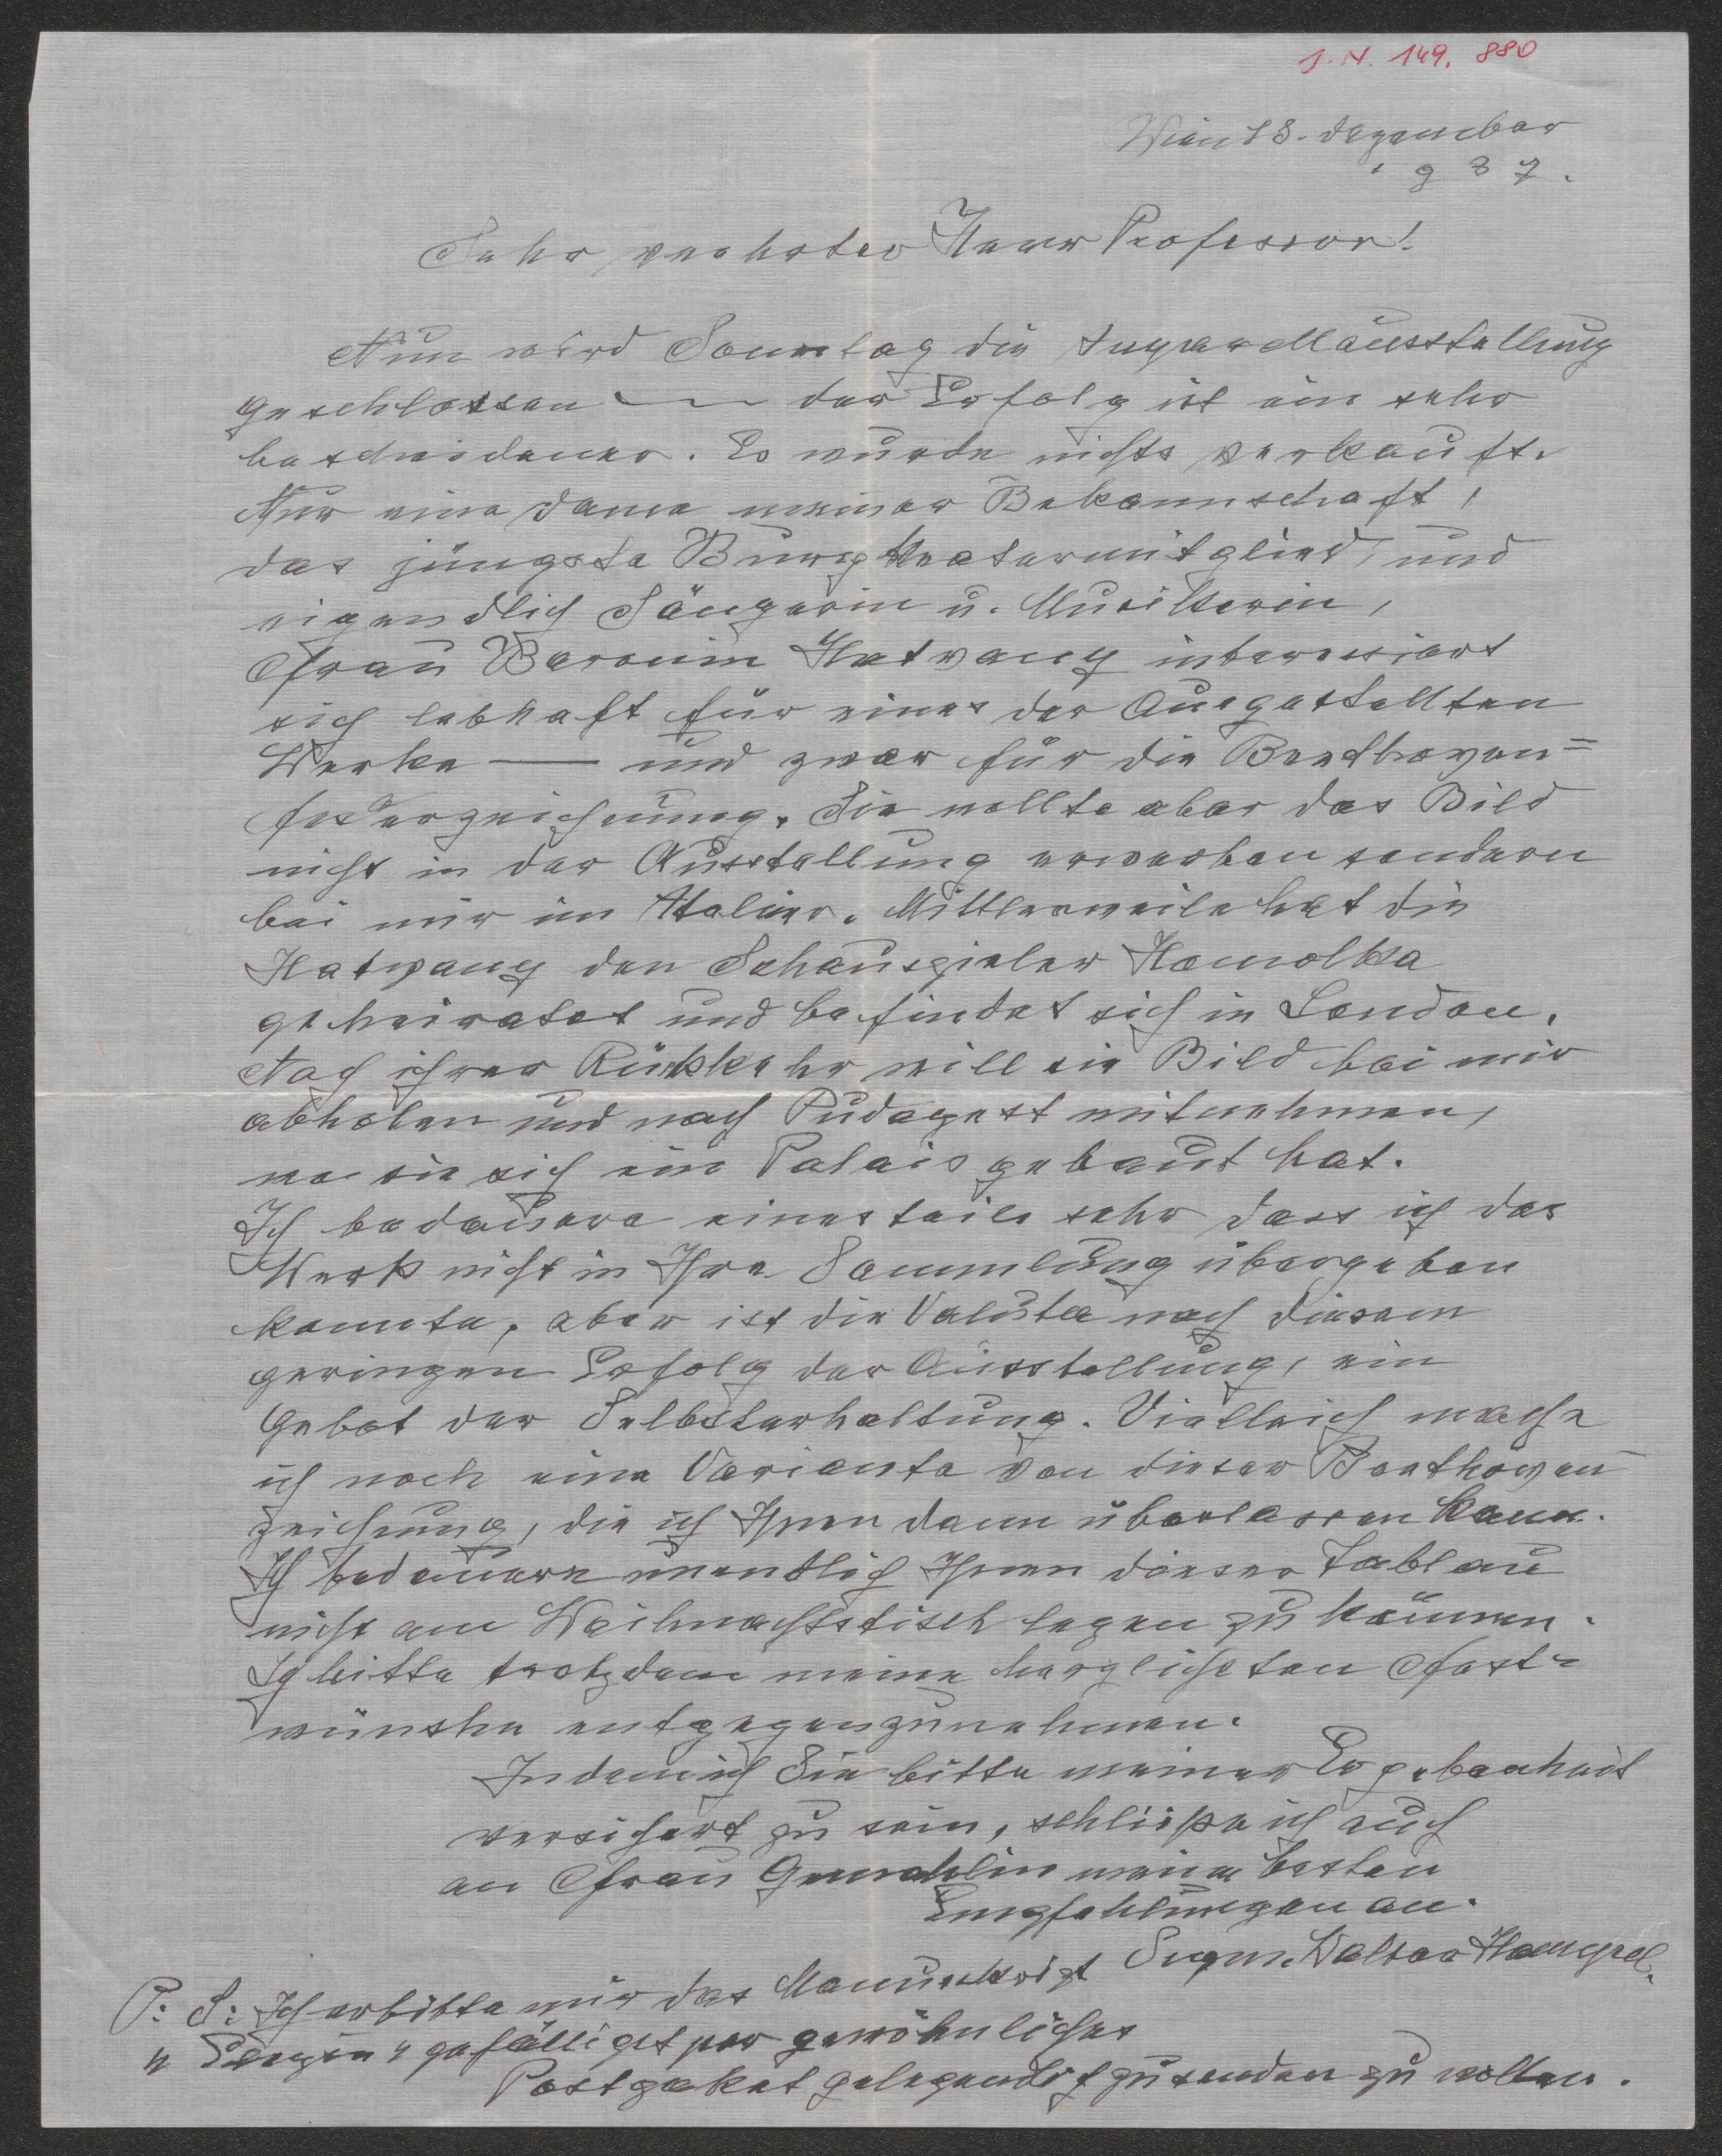 J. N. 149. 880
Wien 18. Dezember
1937.
Sehr verehrter Herr Professor!
Nun wird Sonntag die Ausstellung
geschlossen — der Erfolg ist ein sehr
bescheidener. Es wurde nichts verkauft.
Nur eine Dame meiner Bekanntschaft,
das jüngste Burgtheatermitglied, und
eigendlich Sängerin u. Musikerin,
Frau Baronin Hatvany interessiert
sich lebhaft für eines der Ausgestellten
Werke — und zwar für die Beethoven=
federzeichnung. Sie wollte aber das Bild
nicht in der Ausstellung erwerben sondern
bei mir im Atelier. Mittlerweile hat die
Hatvany den Schauspieler Homolka
geheiratet und befindet sich in London.
Nach ihrer Rückkehr will sie Bild bei mir
abholen und nach Budapest mitnehmen,
wo sie sich ein Palais gebaut hat.
Ich bedauere einesteils sehr dass ich das
Werk nicht in Ihre Sammlung übergeben
konnte, aber ist die Valuta nach diesem
geringen Erfolg der Ausstellung, ein
Gebot der Selbsterhaltung. Vielleich mache
ich noch eine Variante von dieser Beethoven
zeichnung, die ich Ihnen dann überlassen kann.
Ich bedauere unendlich Ihnen dieses Tableau
nicht am Weihnachtstisch legen zu können.
Ich bitte trotzdem meine herzlichsten Fest=
wünsche entgegenzunehmen.
Indem ich Sie bitte meiner Ergebenheit
versichert zu sein, schließe ich auch
an Frau Gemahlin meine besten
Empfehlungen an.
Sigm. Walter Hampel.
P. S: Ich erbitte mir das Manuskript
gefälligst per gewöhnliches
Postpaket gelegendlich zusenden zu wollen.